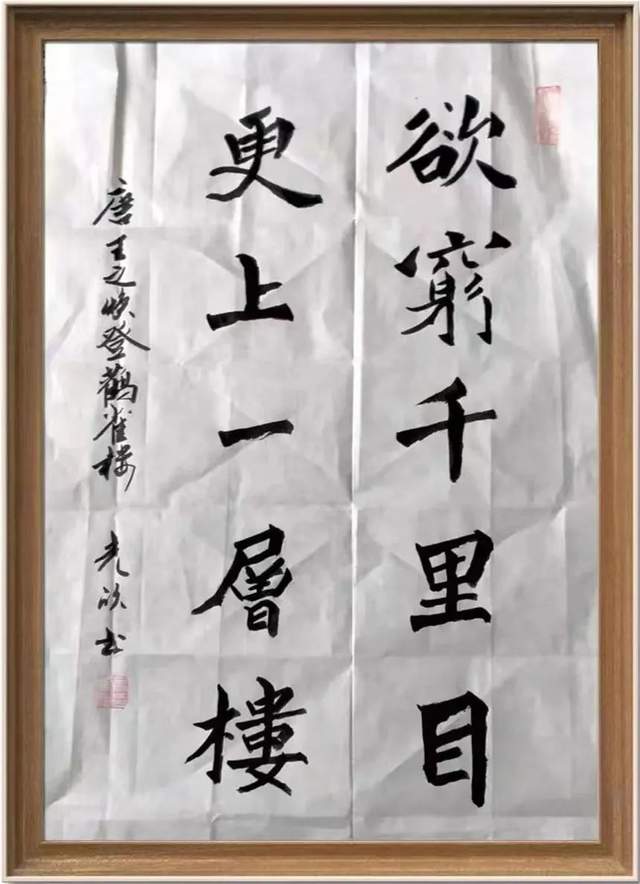 欲窮千里目
更上一層樓
唐王之涣登鸛雀楼 光欣书